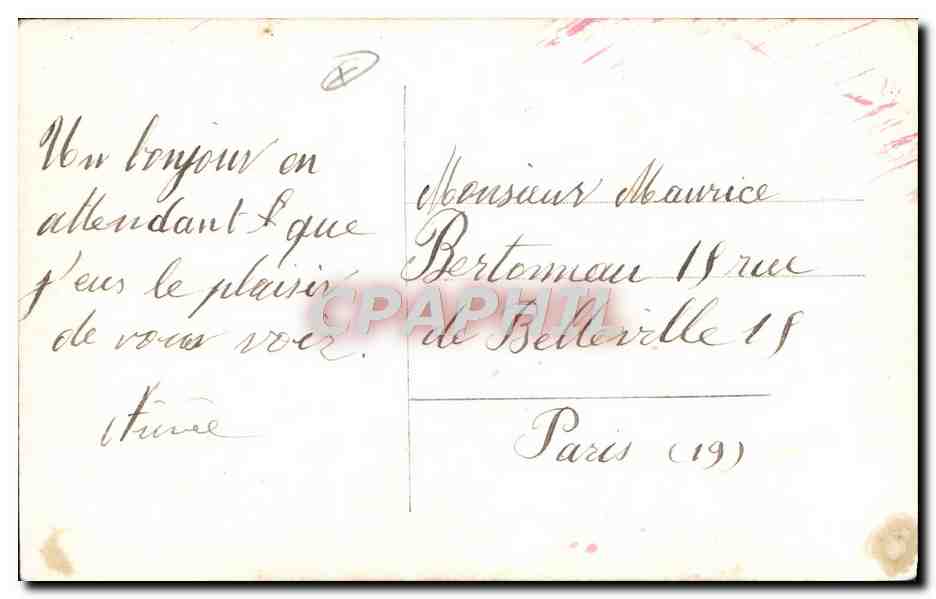 Un bonjour en
attendant que
j'eus le plaisir
de vous voir.
Monsieur Maurice
Bertonneau 18 rue
de Belleville 18
Paris (19)
CPAPHIL